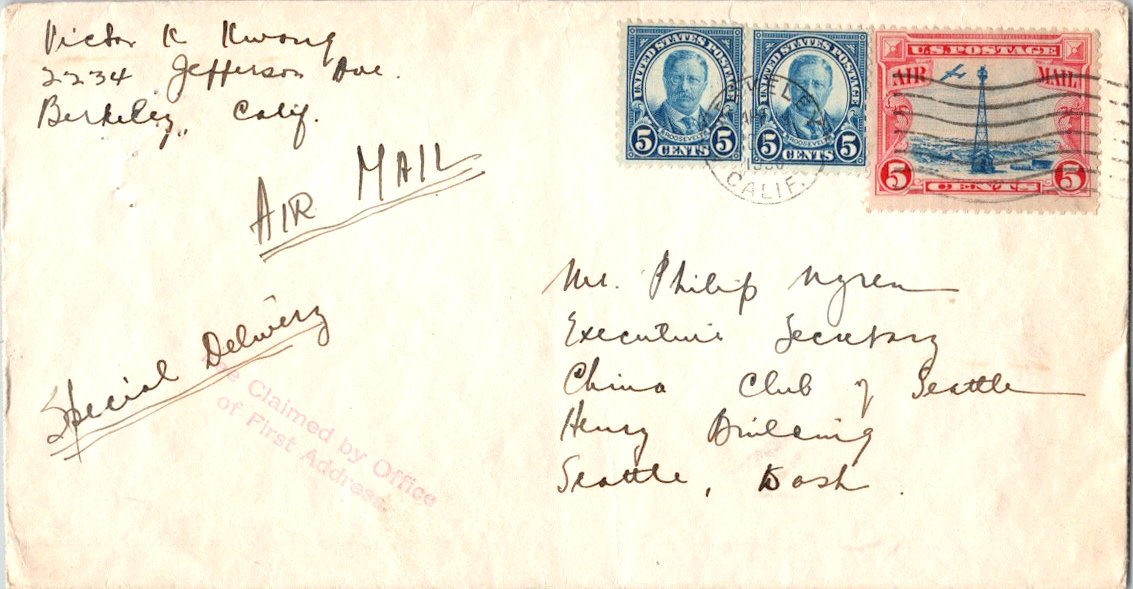 Victor K Kwong
2234 Jefferson Ave.
Berkeley, Calif.
AIR MAIL
Special Delivery
Fee Claimed by Office
of First Address
UNITED STATES POSTAGE
ROOSEVELT
5 CENTS 5
UNITED STATES POSTAGE
ROOSEVELT
5 CENTS 5
BERKELEY
CALIF.
U.S. POSTAGE
AIR MAIL
5 CENTS 5
Mr. Philip Nyren
Executive Secretary
China Club of Seattle
Henry Building
Seattle, Wash.